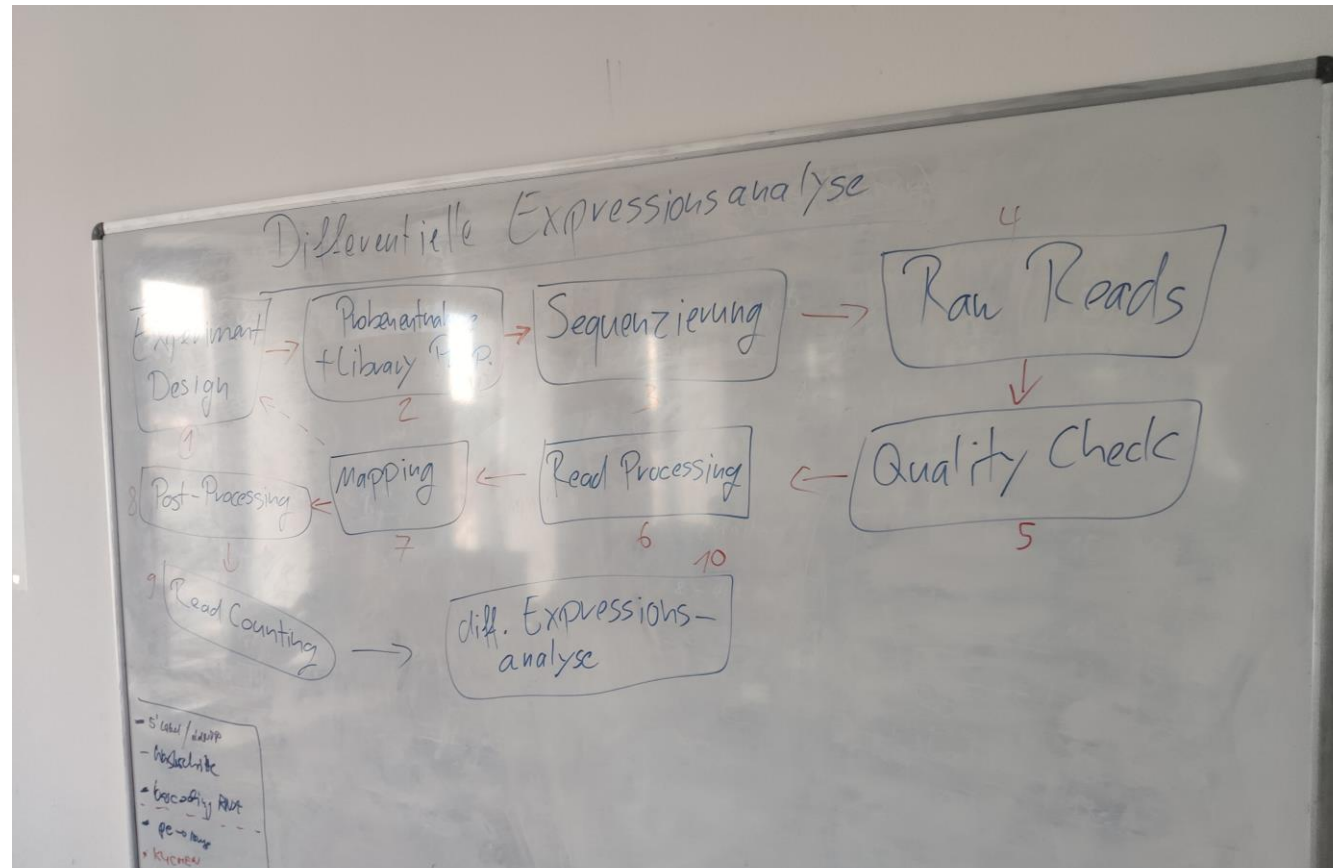 Differentielle Expressionsanalyse
4
Experiment
Design
1
Probenentnahme
+ Library Prep.
2
Sequenzierung
3
Raw Reads
Quality Check
5
Read Processing
6
Mapping
7
8
Post-Processing
9
Read Counting
10
diff. Expressions-
analyse
- 5' Label /
-
RNA
•
• KUCHEN